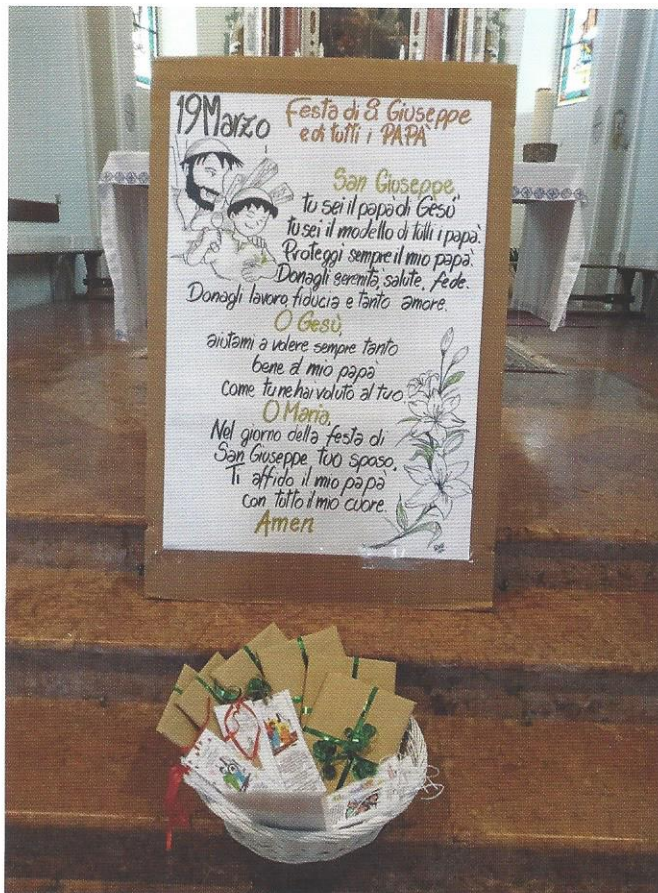 19 Marzo
Festa di S. Giuseppe
e di tutti i PAPÀ
San Giuseppe,
tu sei il papà di Gesù
tu sei il modello di tutti i papà.
Proteggi sempre il mio papà.
Donagli serenità, salute, fede.
Donagli lavoro, fiducia e tanto amore.
O Gesù,
aiutami a volere sempre tanto
bene al mio papà
come tu ne hai voluto al tuo.
O Maria,
Nel giorno della festa di
San Giuseppe tuo sposo,
Ti affido il mio papà
con tutto il mio cuore.
Amen